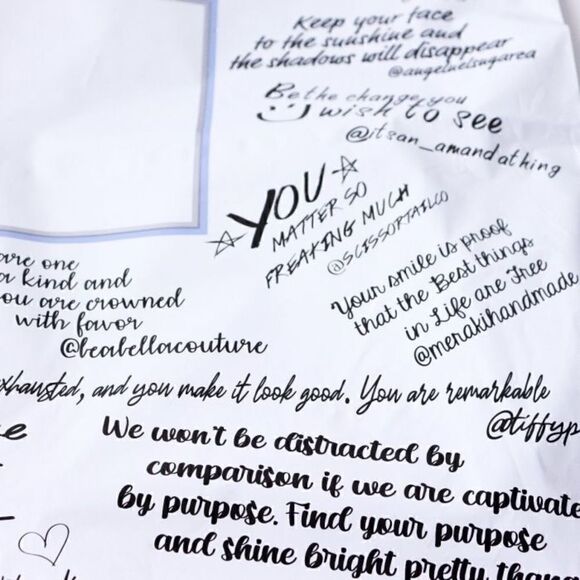 Keep your face
to the sunshine and
the shadows will disappear
@angelnelsugarea
Be the change you
wish to see
@itsan_amandathing
YOU
MATTER SO
FREAKING MUCH
@SCISSORTAILCO
Your smile is proof
that the Best things
in Life are Free
@merakihandmade
are one
a kind and
ou are crowned
with favor
@beabellacouture
xhausted, and you make it look good. You are remarkable
@tiffyp
We won't be distracted by
comparison if we are captivate
by purpose. Find your purpose
and shine bright pretty thang